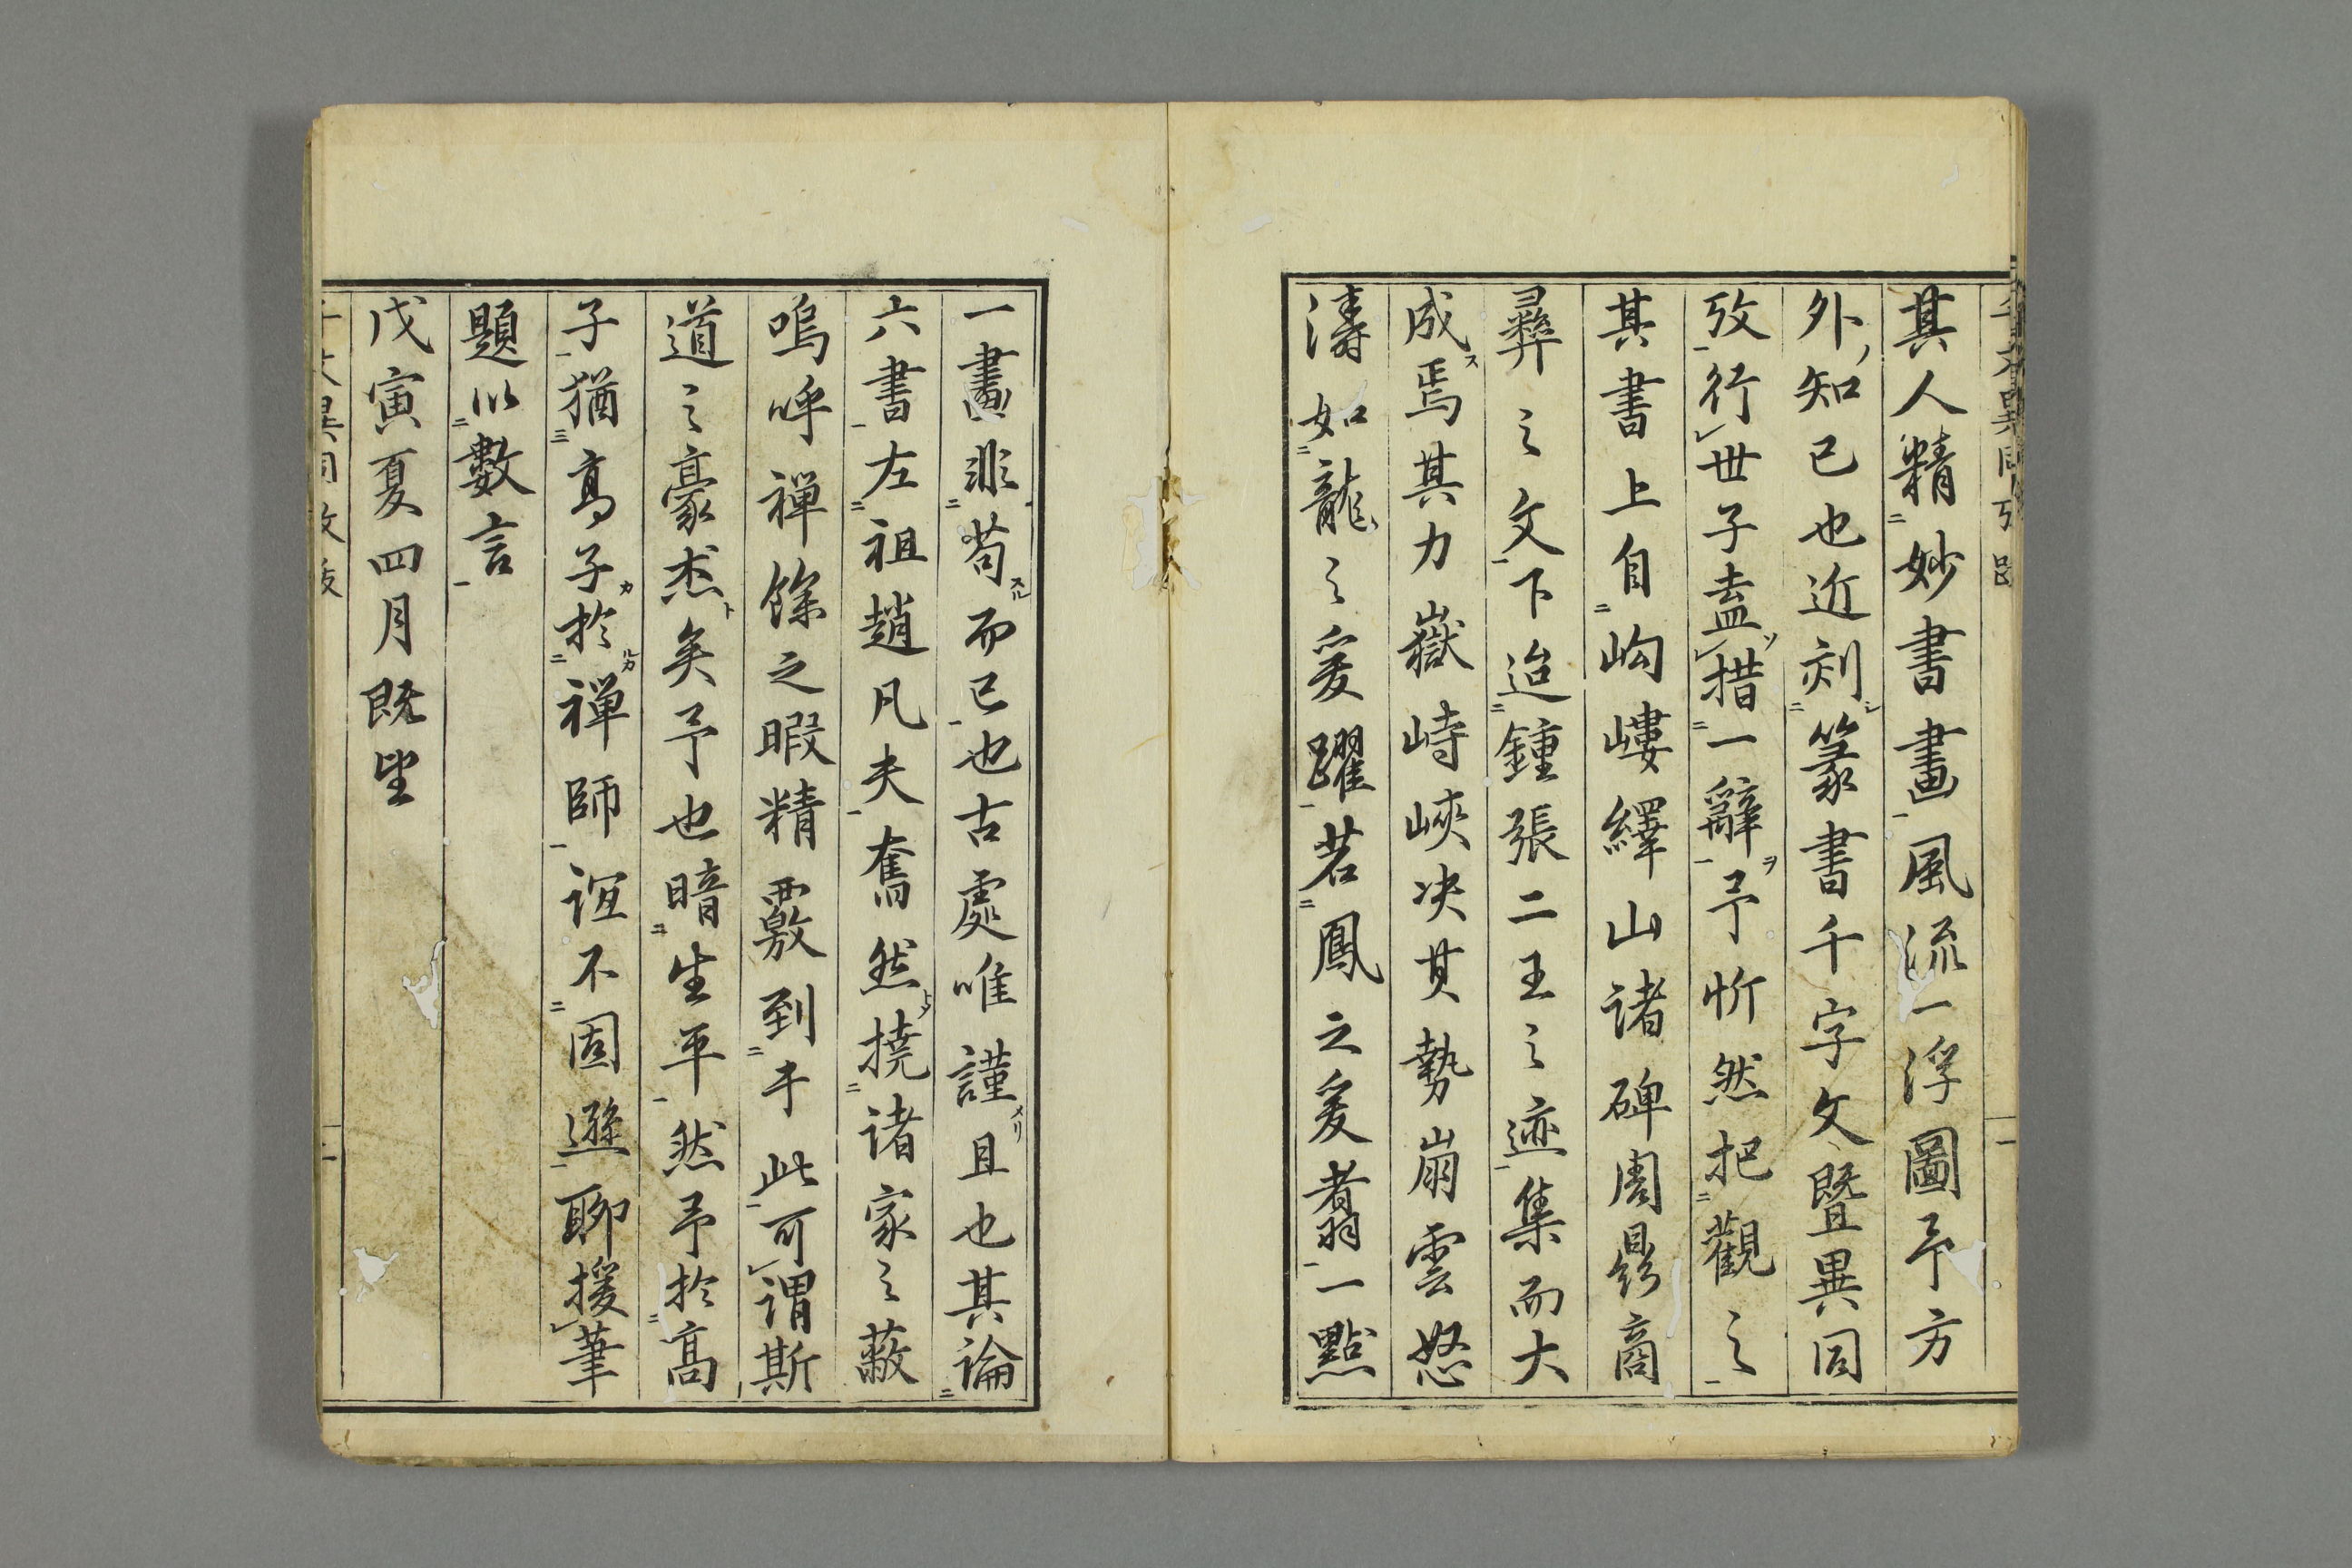 其人精妙書畫風流一浮圖予方
外知已也近刻篆書千字文暨異同
攷行世子盍措一辭予忻然把觀之
其書上自岣嶁繹山諸碑周鼎商
彝之文下迨鍾張二王之迹集而大
成焉其力嶽峙峽决其勢崩雲怒
濤如龍之爰躍若鳳之爰翥一點
一畫非苟而已也古處唯謹且也其論
六書左祖趙凡夫奮然撓諸家之蔽
嗚呼禪餘之暇精覈到于此可謂斯
道之豪杰矣予也暗生平然予於高
子猶高子於禪師誼不固遜聊援筆
題以數言
戊寅夏四月既望